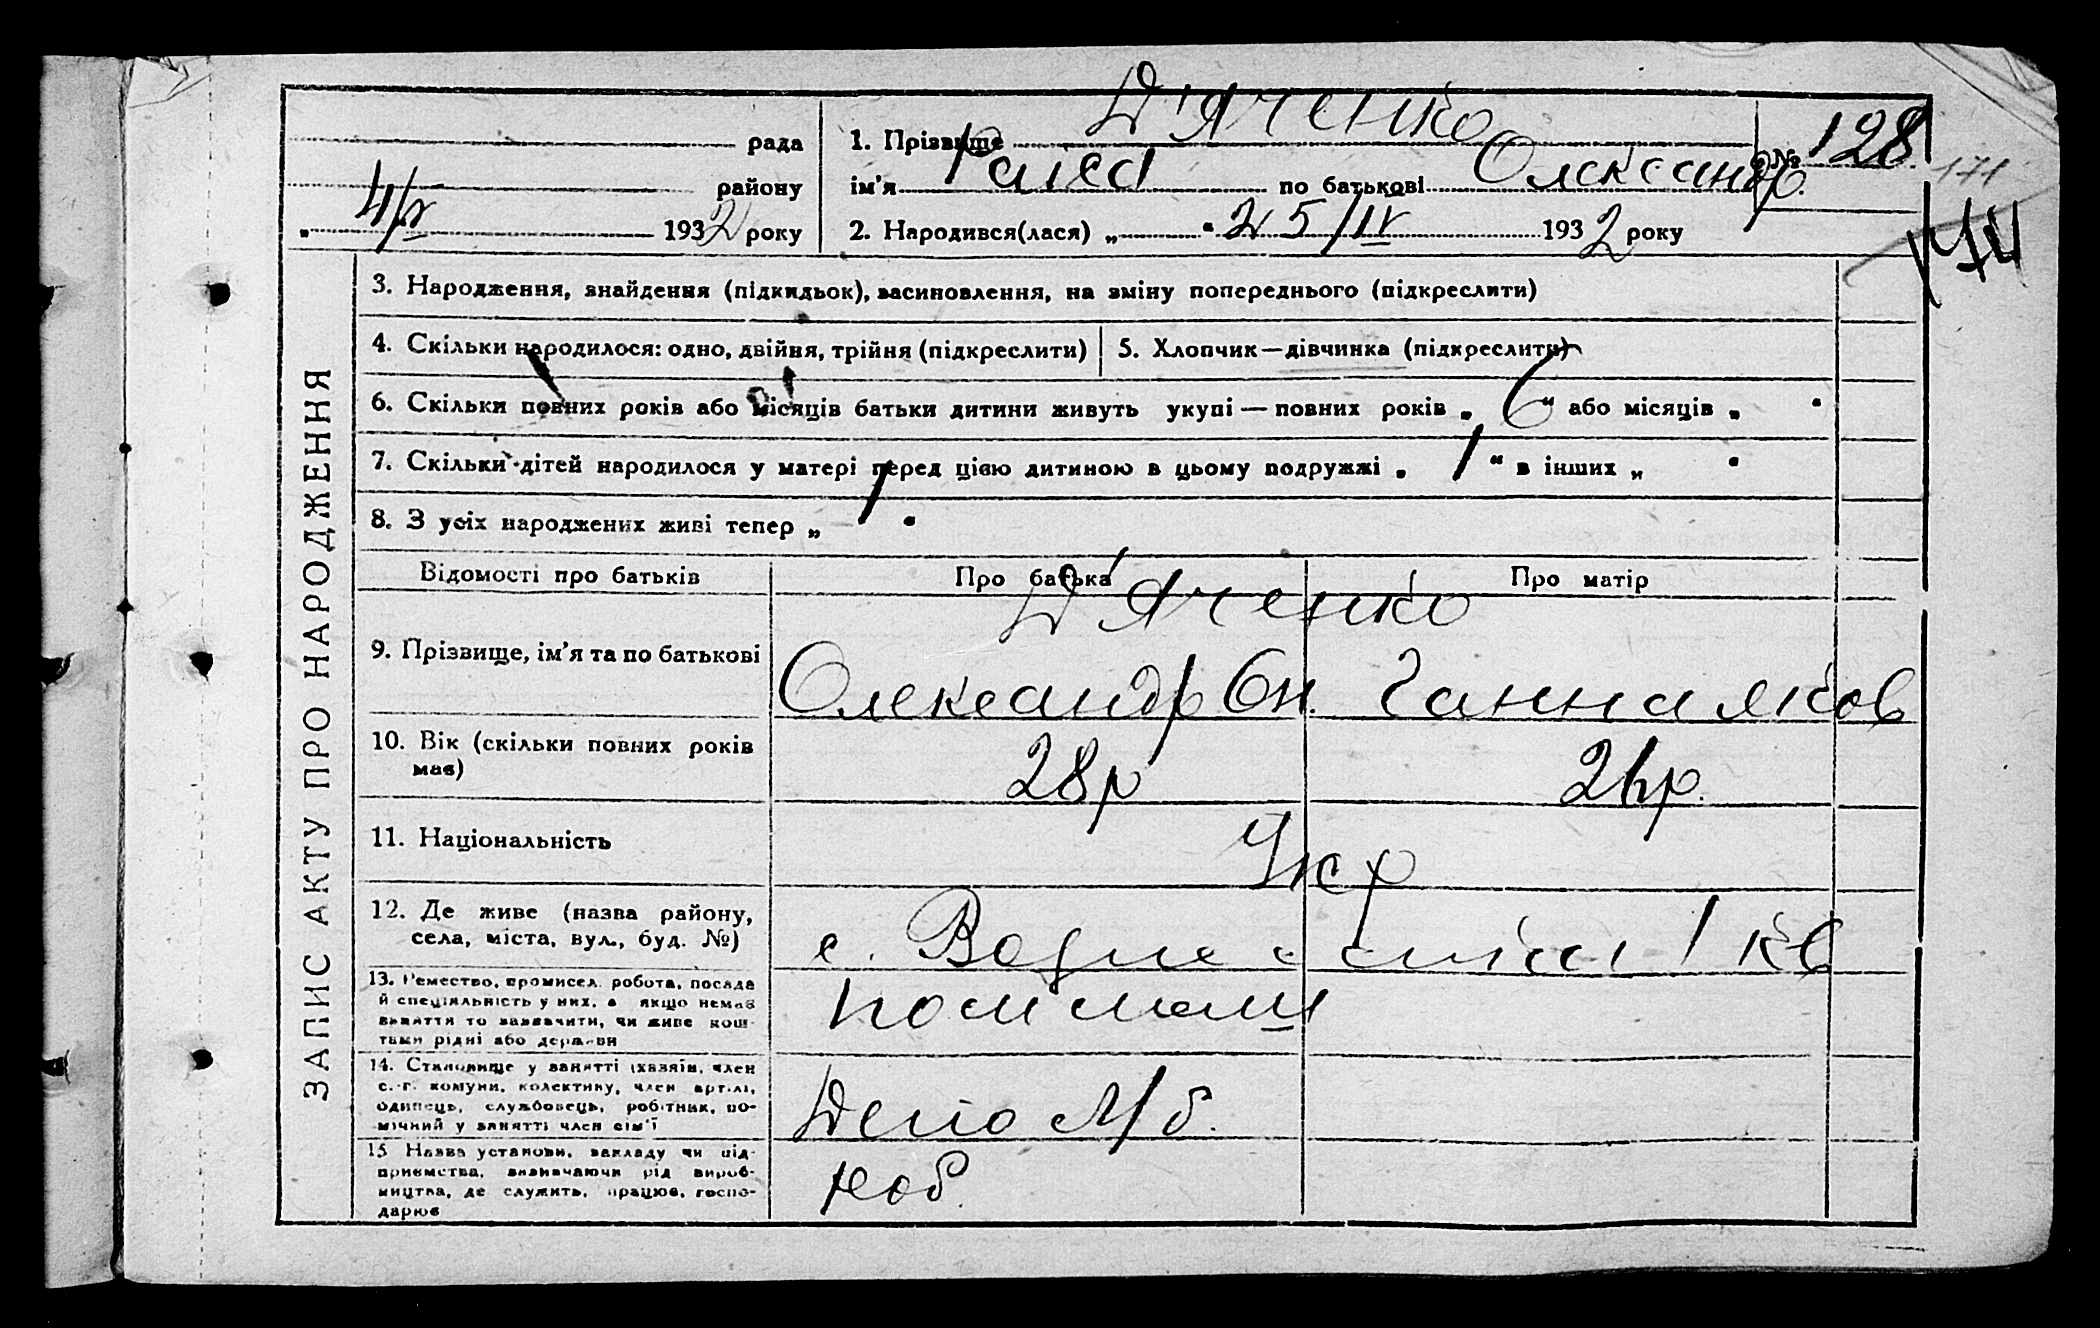 Д'яченко
рада 1. Прізвище 128
Раїса Олександр.
району ім'я по батькові № 171
„ 4/V 1932 року 2. Народився(лася) „ 25/IV 1932 року
174
ЗАПИС АКТУ ПРО НАРОДЖЕННЯ
3. Народження, знайдення (підкидьок), засиновлення, на зміну попереднього (підкреслити)
4. Скільки народилося: одно, двійня, трійня (підкреслити) 5. Хлопчик—дівчинка (підкреслити)
6. Скільки повних років або місяців батьки дитини живуть укупі — повних років „ 6 “ або місяців „ “
7. Скільки дітей народилося у матері перед цією дитиною в цьому подружжі „ 1 “ в інших „ “
8. З усіх народжених живі тепер „ 1 “
Відомості про батьків Про батька Про матір
Д'яченко
9. Прізвище, ім'я та по батькові
Олександр Ганна Яков
10. Вік (скільки повних років має)
28р 26р.
11. Національність
Укр
12. Де живе (назва району, села, міста, вул., буд. №)
с. 1 кв
13. Ремество, промисел, робота, посада
й спеціяльність у них, а якщо немає
заняття то зазначити, чи живе кош-
тами рідні або держави
14. Становище у занятті (хазяїн, член
с.-г. комуни, колективу, член артілі,
одинець, службовець, робітник, по-
мічний у занятті член сім'ї
Депо
15 Назва установи, закладу чи під-
приємства, визначаючи рід вироб-
ництва, де служить, працює, госпо-
дарює
роб.